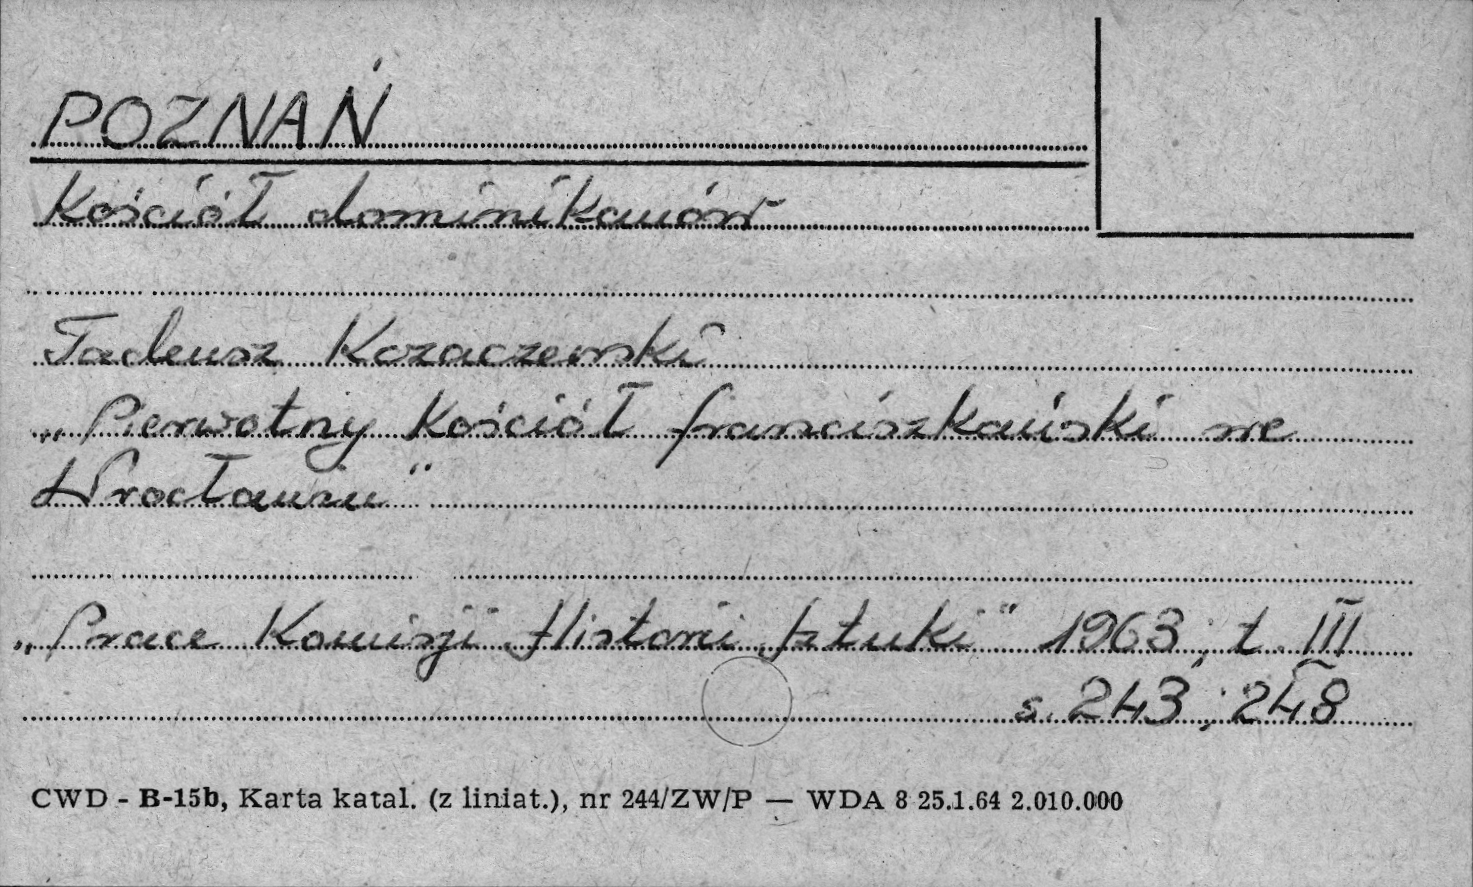 POZNAŃ
Kościół dominikanów
Tadeusz Kozaczewski
„Pierwotny kościół franciszkański we
Wrocławiu"
„Prace Komisji Historii Sztuki" 1963; t. III
s. 243; 248
CWD - B-15b, Karta katal. (z liniat.), nr 244/ZW/P — WDA 8 25.1.64 2.010.000